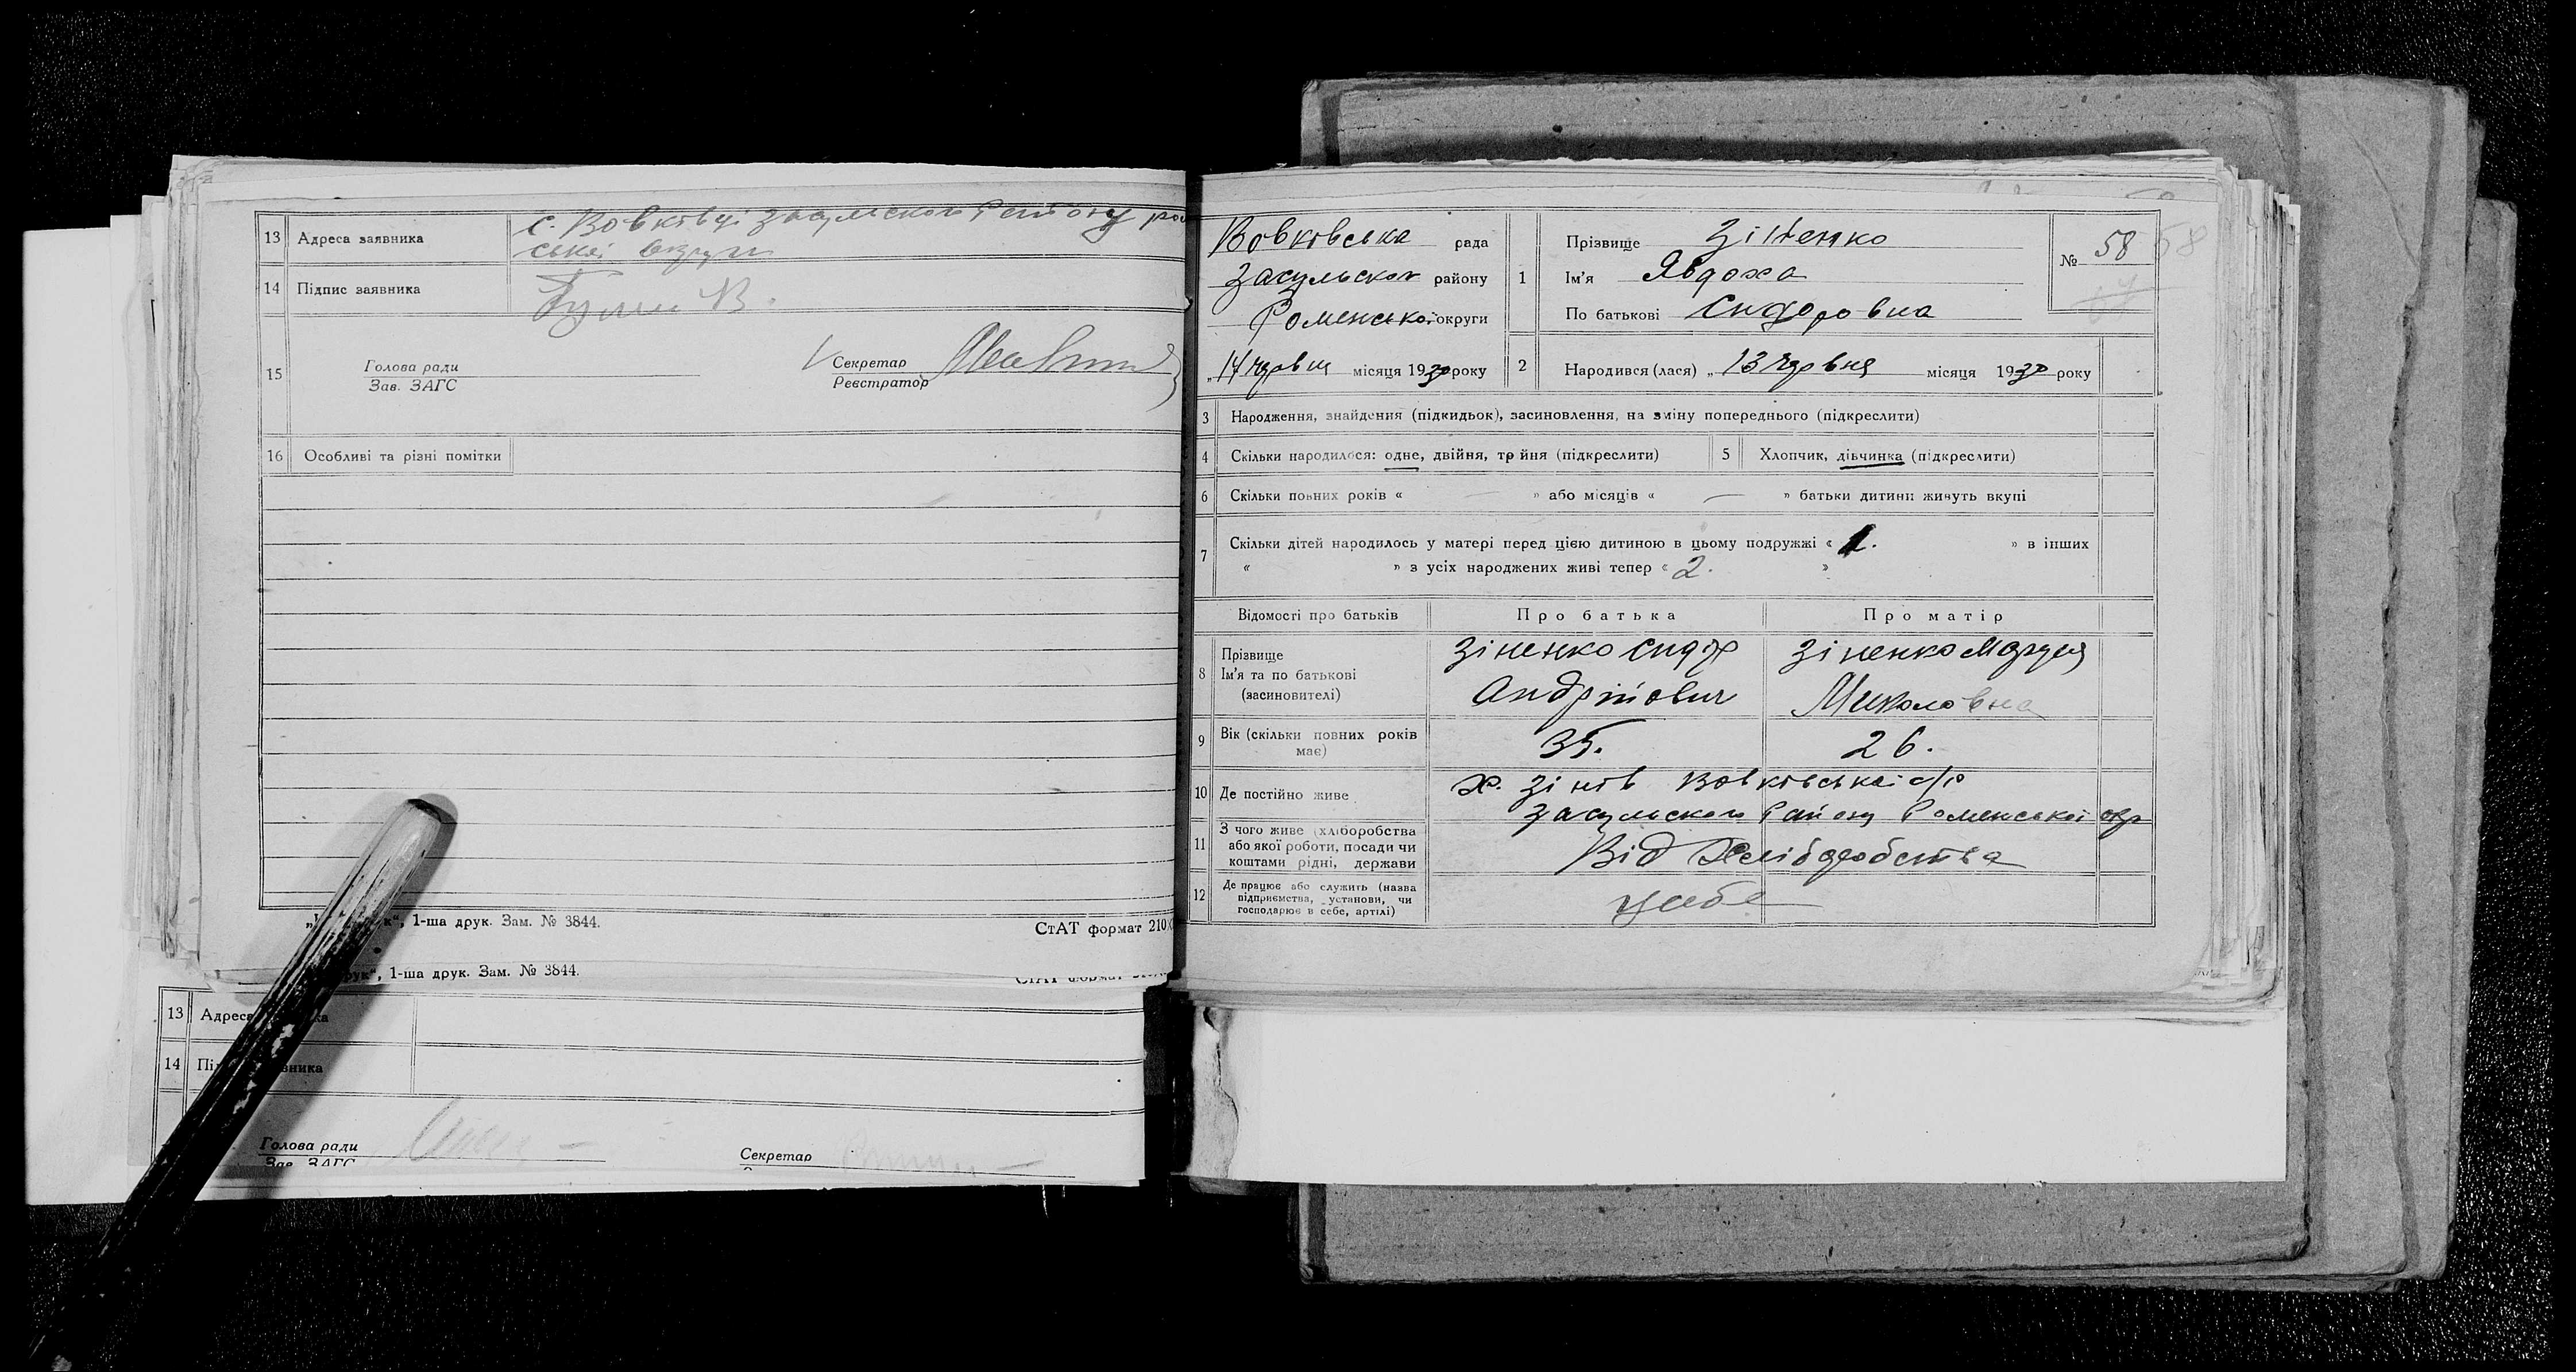 13 Адреса заявника с. Вовківці засульского Району ро
ської округи
14 Підпис заявника
15 Голова ради
Зав. ЗАГС
Секретар
Реєстратор
16 Особливі та різні помітки
1-ша друк. Зам. № 3844.
СтАТ формат 210
1-ша друк. Зам. № 3844.
13 Адреса
14
Голова ради
Зав. ЗАГС
Секретар
Вовківська рада
Засульског району
Роменської округи
„14 червня місяця 1930 року
1 Прізвище Зіненко
Ім'я Явдоха
По батькові Сидоровна
№ 58
58
2 Народився (лася) „13 червня місяця 1930 року
3 Народження, знайдення (підкидьок), засиновлення, на зміну попереднього (підкреслити)
4 Скільки народилося: одне, двійня, тройня (підкреслити)
5 Хлопчик, дівчинка (підкреслити)
6 Скільки повних років « — » або місяців « — » батьки дитини живуть вкупі
7 Скільки дітей народилось у матері перед цією дитиною в цьому подружжі « 1. » в інших
« » з усіх народжених живі тепер « 2. »
Відомості про батьків Про батька Про матір
8 Прізвище
Ім'я та по батькові
(засиновителі)
Зіненко Сидор
Андрійович
Зіненко
Миколовна
9 Вік (скільки повних років
має)
35.
26.
10 Де постійно живе х. Зінів Вовківської с/р
Засульского Району Роменської окр
11 З чого живе (хліборобства
або якої роботи, посади чи
коштами рідні, держави
Від Хліборобства
12 Де працює або служить (назва
підприємства, установи, чи
господарює в себе, артілі)
усебе